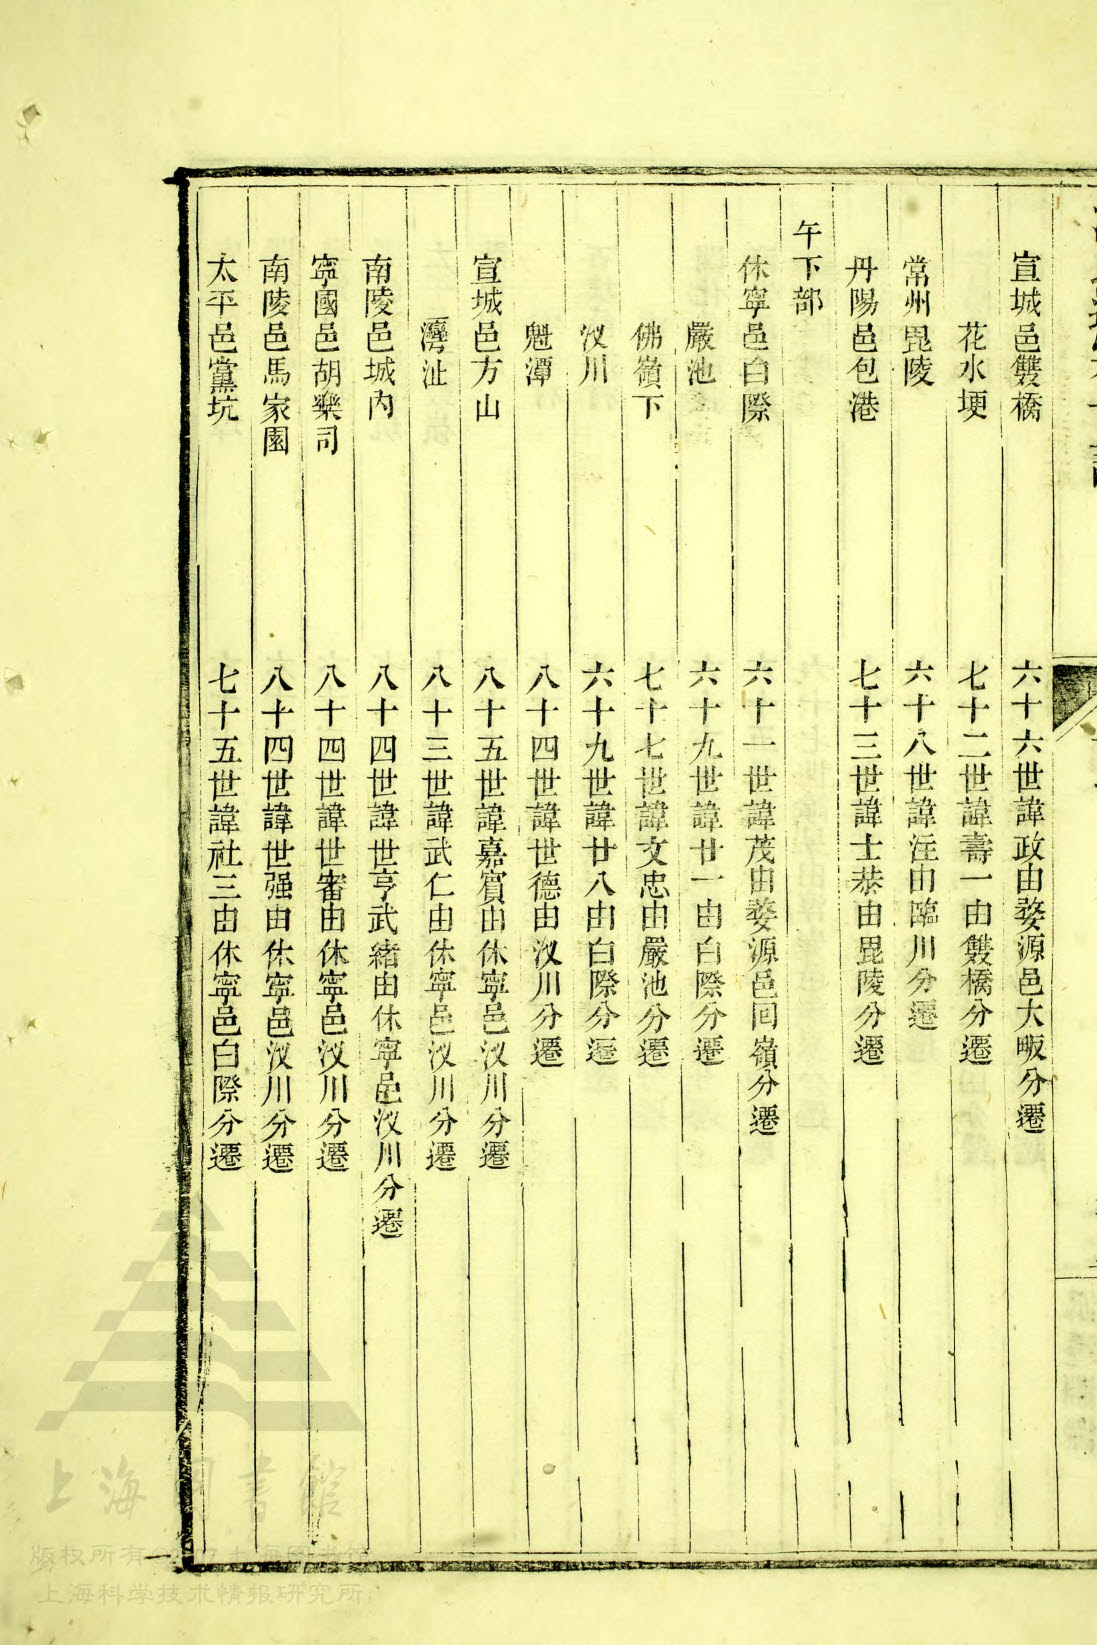 宣城邑雙橋　六十六世諱政由婺源邑大畈分遷
花水埂　七十二世諱壽一由雙橋分遷
常州毘陵　六十八世諱注由臨川分遷
丹陽邑包港　七十三世諱士恭由毘陵分遷
午下部
休寧邑白際　六十一世諱茂由婺源邑回嶺分遷
嚴池　六十九世諱廿一由白際分遷
佛嶺下　七十七世諱文忠由嚴池分遷
汊川　六十九世諱廿八由白際分遷
魁潭　八十四世諱世德由汊川分遷
宣城邑方山　八十五世諱嘉賓由休寧邑汊川分遷
灣沚　八十三世諱武仁由休寧邑汊川分遷
南陵邑城內　八十四世諱世亨武緒由休寧邑汊川分遷
寧國邑胡樂司　八十四世諱世審由休寧邑汊川分遷
南陵邑馬家園　八十四世諱世强由休寧邑汊川分遷
太平邑黨坑　七十五世諱社三由休寧邑白際分遷
上海圖書館
版权所有©2017上海图书馆
上海科学技术情报研究所